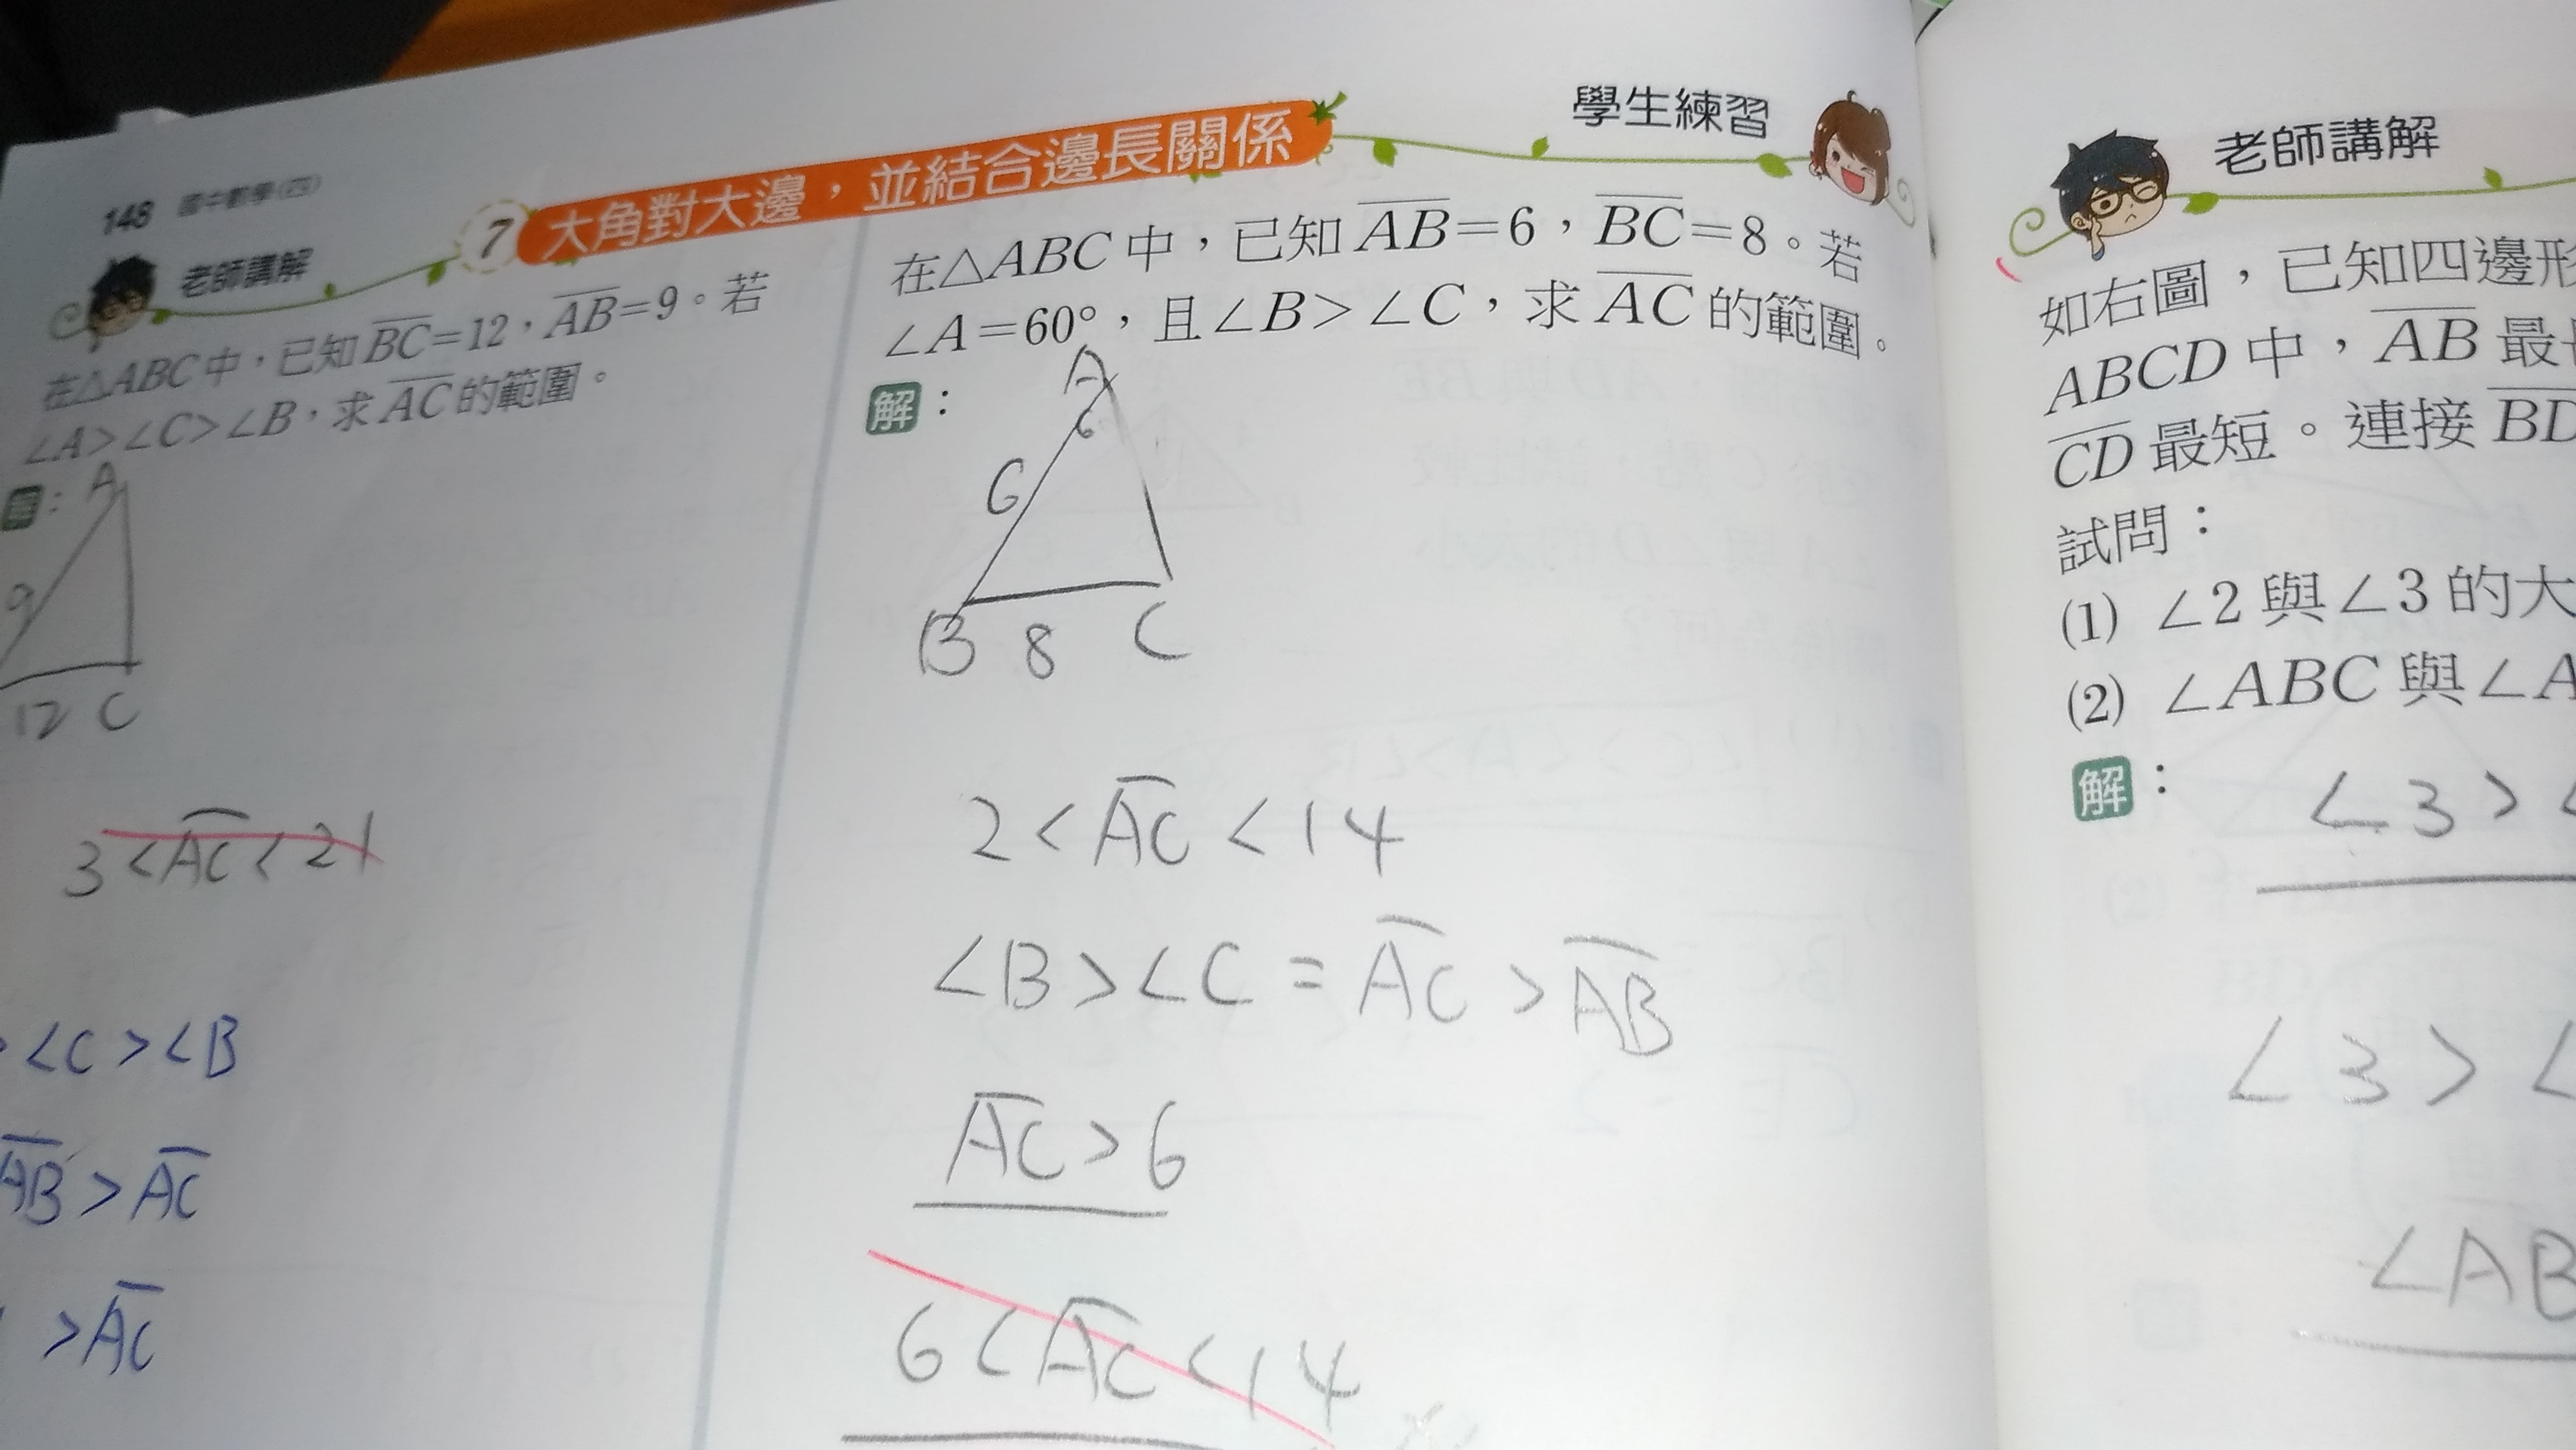 148 國中數學(四)
老師講解
7 大角對大邊，並結合邊長關係
在△ABC中，已知BC=12，AB=9。若
∠A>∠C>∠B，求AC的範圍。
A
9
12 C
3<AC<21
∠C>∠B
AB>AC
>AC
學生練習
在△ABC中，已知AB=6，BC=8。若
∠A=60°，且∠B>∠C，求AC的範圍。
解：
A
6
B 8 C
2<AC<14
∠B>∠C=AC>AB
AC>6
6<AC<14
老師講解
如右圖，已知四邊形
ABCD中，AB最
CD最短。連接BD
試問：
(1) ∠2與∠3的大
(2) ∠ABC與∠A
解：
∠3>
∠3>
∠AB